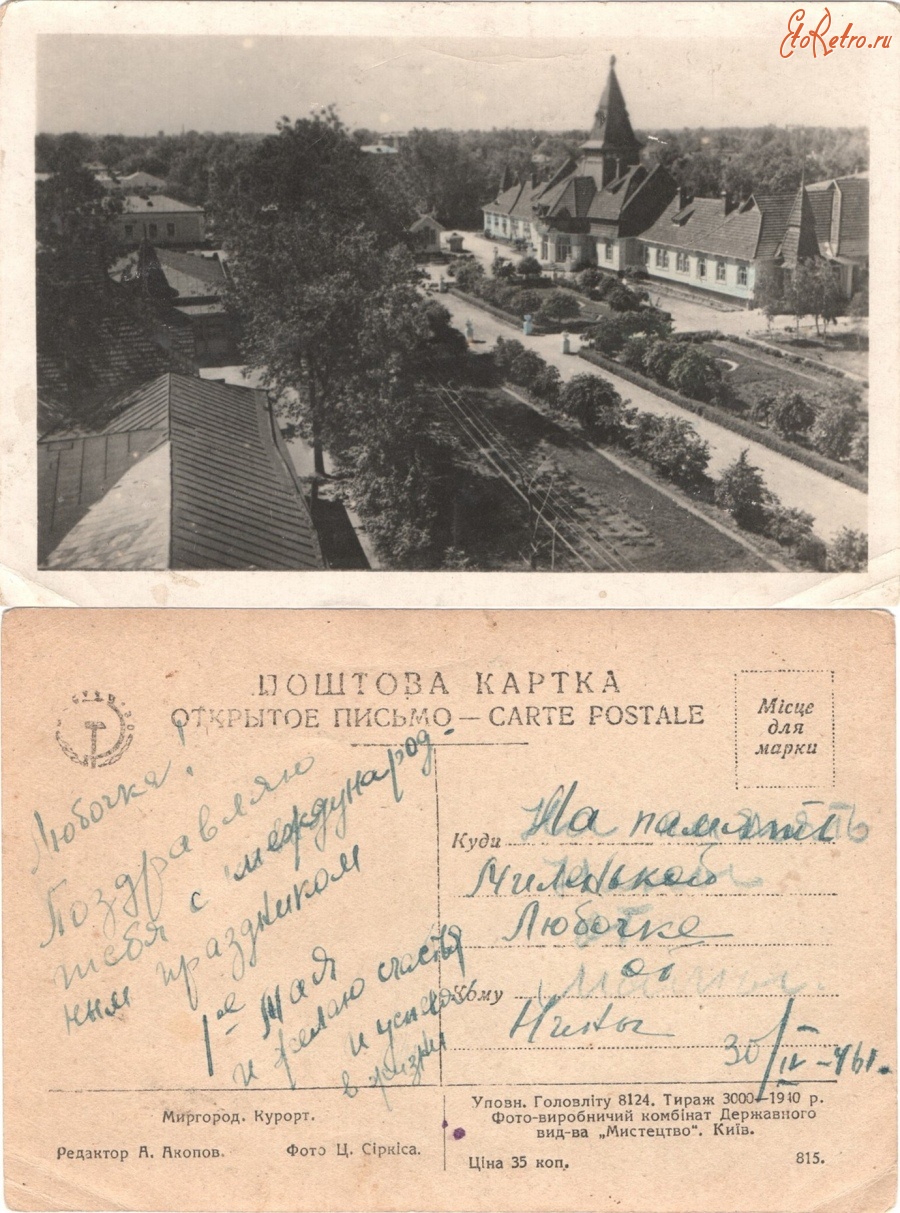 EtoRetro.ru
ПОШТОВА КАРТКА
ОТКРЫТОЕ ПИСЬМО — CARTE POSTALE
Місце
для
марки
Любочка!
Поздравляю
тебя с международ-
ным праздником
1-е Мая
и желаю счастья
и успехов
в жизни
Куди На память
Миленькой
Любочке
Кому от
Нины
30/IV-46г.
Миргород. Курорт.
Редактор А. Акопов. Фото Ц. Сіркіса.
Уповн. Головліту 8124. Тираж 3000—1940 р.
Фото-виробничий комбінат Державного
вид-ва „Мистецтво“. Київ.
Ціна 35 коп. 815.